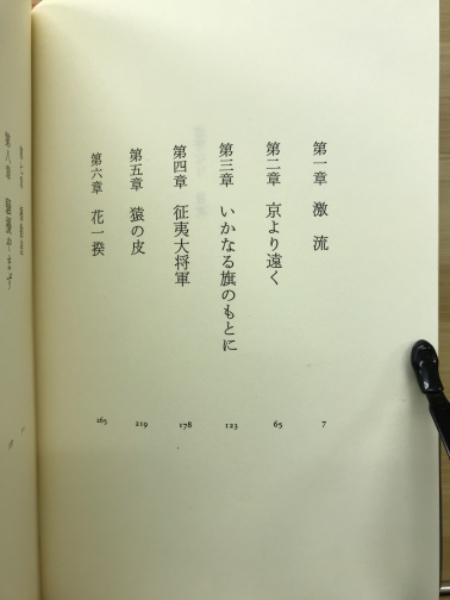 第一章 激流 7
第二章 京より遠く 65
第三章 いかなる旗のもとに 123
第四章 征夷大将軍 178
第五章 猿の皮 219
第六章 花一揆 265